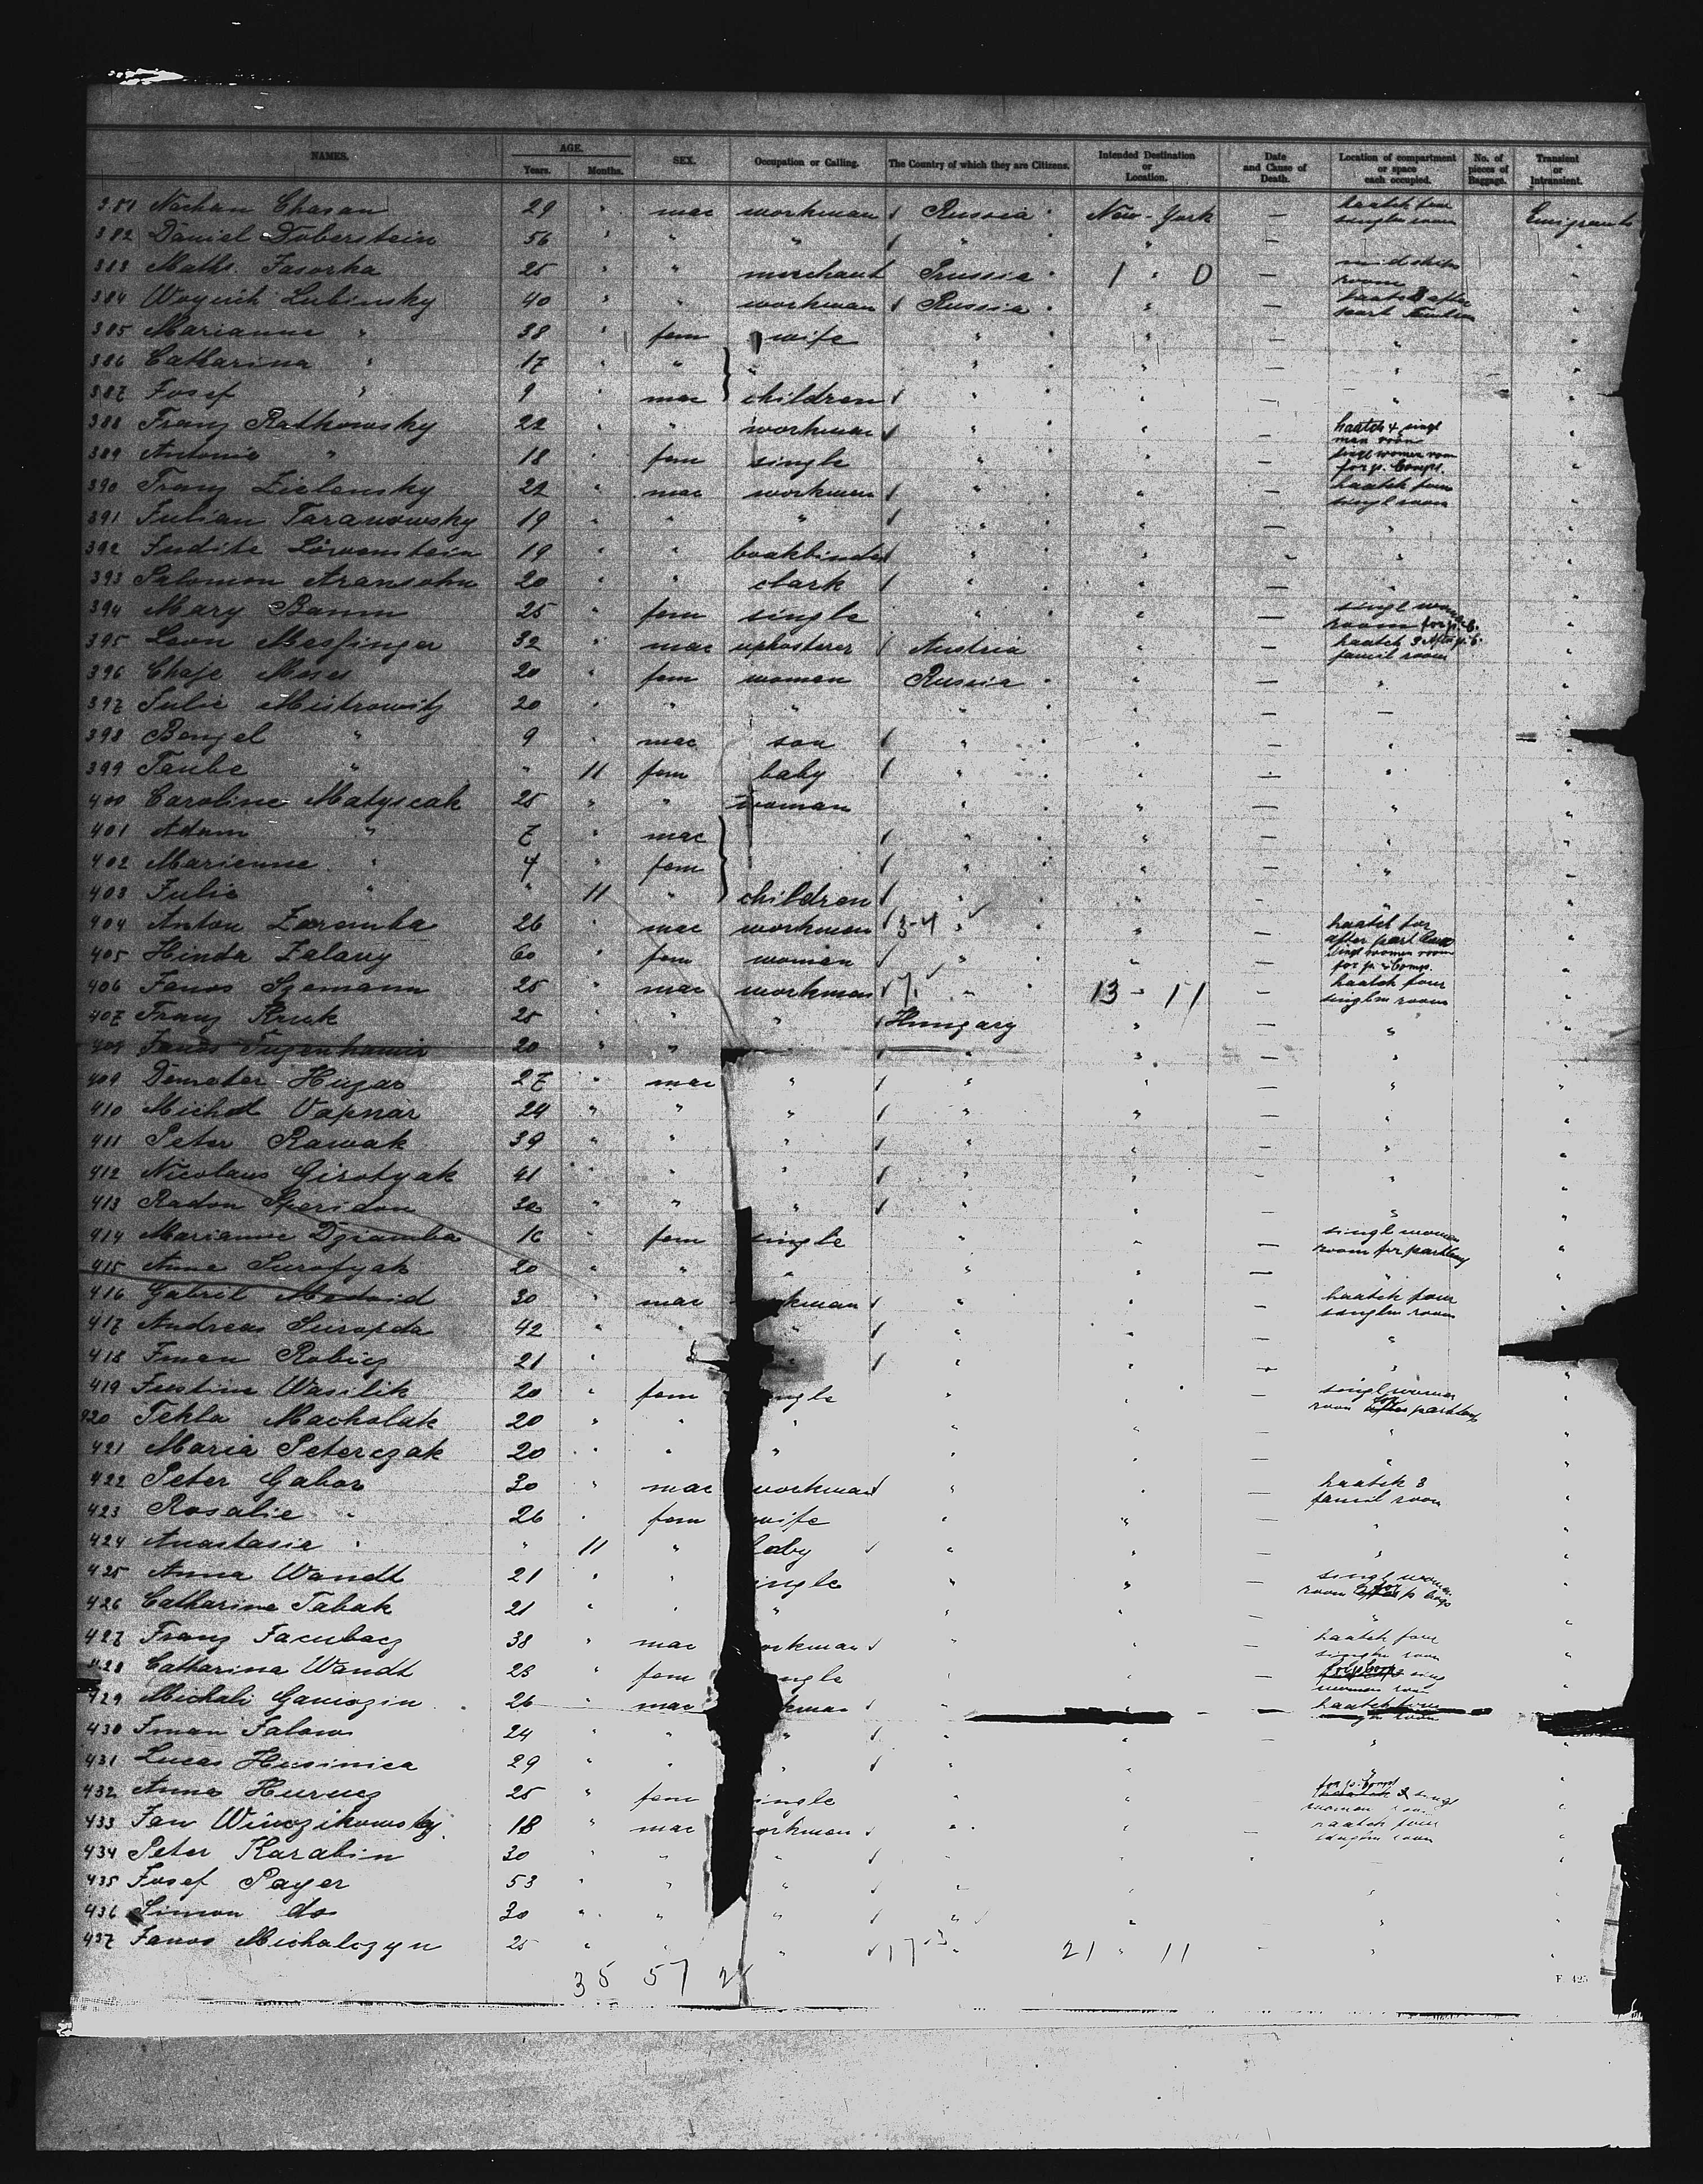 NAMES. AGE. Years. Months. SEX. Occupation or Calling. The Country of which they are Citizens. Intended Destination or Location. Date and Cause of Death. Location of compartment or space each occupied. No. of pieces of Baggage. Transient or Intransient.
381 Nachan Chasan 29 " mae workman Russia New-York — haatch four singlm room Emigrants
382 Daniel Doberstein 56 " " " " " — "
383 Maths. Jasorka 25 " " merchant Prussia 1 " 0 — midships room "
384 Lubinsky 40 " " workman Russia " — haatch 3 after part "
385 Marianne " 38 " fem wife " " — " "
386 Catharina " 17 " " " " " — " "
387 Josef " 9 " mae children " " — " "
388 Franz Rathowsky 22 " " workman " " — haatch 4 singl men room "
389 Antonie " 18 " fem single " " — singl women room for p. Comps. "
390 Franz Zielensky 22 " mae workman " " — haatch four singl room "
391 Julian Taranowsky 19 " " " " " — " "
392 Judite Löwenstein 19 " " boakbinder " " — " "
393 Salomon Aransohn 20 " " clark " " — " "
394 Mary Baum 25 " fem single " " — singl woman room for p. C. "
395 Leon Messinger 32 " mae upholsterer Austria " — haatch 3 famil room "
396 Chaje Moses 20 " fem woman Russia " — " "
397 Julie Meitrowitz 20 " " " " " — — "
398 Bengel " 9 " mae son " " — " "
399 Taube " " 11 fem baby " " — " "
400 Caroline Matyscak 25 " " woman " " — " "
401 Adam " 7 " mae " " — " "
402 Marianne " 4 " fem " " — " "
403 Julie " " 11 " children " " — " "
404 Anton Zaremba 26 " mae workman 3-4 " " — haatch for after part "
405 Hinda Zalavy 60 " fem woman " " — singl women room for p. Comps. "
406 Janos Szemann 25 " mae workman 7. " 13 - 11 — haatch four singlm room "
407 Franz Kruk 25 " " " Hungary " — " "
408 Janos 20 " " " " — " "
409 Demeter Hugar 27 " mae " " " — " "
410 Michel Vapnar 24 " " " " " — " "
411 Peter Rawak 39 " " " " " — " "
412 Nicolaus Girotyak 41 " " " " " — " "
413 Radon Speridon 30 " " " " " — " "
414 Marianne Dziamba 16 " fem single " " — singl woman room for part "
415 Anna Surofyak 20 " " " " " — " "
416 Gabril 30 " mae kman " " — haatch four singlm room "
417 Andreas Suropda 42 " " " " " — " "
418 Iman Robicz 21 " " " " — " "
419 Justine Wasilik 20 " fem ngle " " — singl woman room part "
420 Tekla Macholak 20 " " " " " — " "
421 Maria Peterczak 20 " " " " " — " "
422 Peter Gabor 30 " mae workman " " — haatch 3 famil room "
423 Rosalie " 26 " fem wife " " — " "
424 Anastasia " " 11 " baby " " — " "
425 Anna Wandt 21 " " ingle " " — singl woman room "
426 Catharine Tabak 21 " " " " " — " "
427 Franz Jacubacz 38 " mae orkman " " — haatch four singlm room "
428 Catharina Wandt 23 " fem ngle " " — sing woman room "
429 Michali 26 " mae kman " " — haatch four room "
430 Iman Jalows 24 " " " " " — " "
431 Lucas Husinica 29 " " " " " — " "
432 Anna Hurucz 25 " fem ingle " " — for p. Comps singl woman room "
433 Jan Winczikowsky 18 " mae orkman " " — haatch four singlm room "
434 Peter Karabin 30 " " " " " — " "
435 Josef Payer 53 " " " " " — " "
436 Simon do 30 " " " " " — " "
437 Janos Michalczyn 25 " " " 17 " 21 " 11 — " "
35 57 2